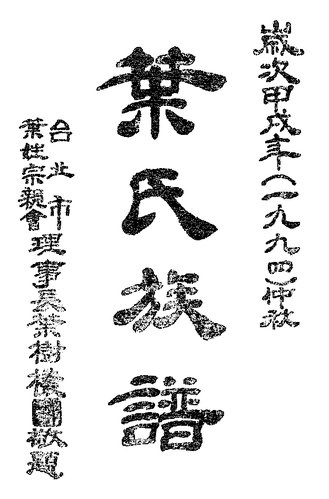 歲次甲戌年(一九九四)仲秋
葉氏族譜
台北市葉姓宗親會理事長葉樹 敬題